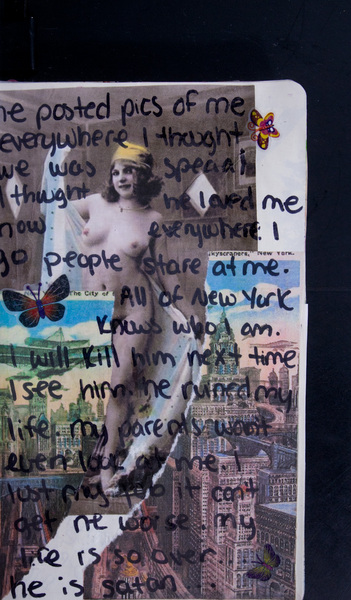 he posted pics of me
everywhere I thought
we was special
I thought he loved me
now everywhere I
go people stare at me.
skyscrapers, New York.
The City of
All of New York
Knows who I am.
I will kill him next time
I see him. he ruined my
life. my parents won't
even look at me. I
lost my job it can't
get ne worse. my
life is so over.
he is satan.